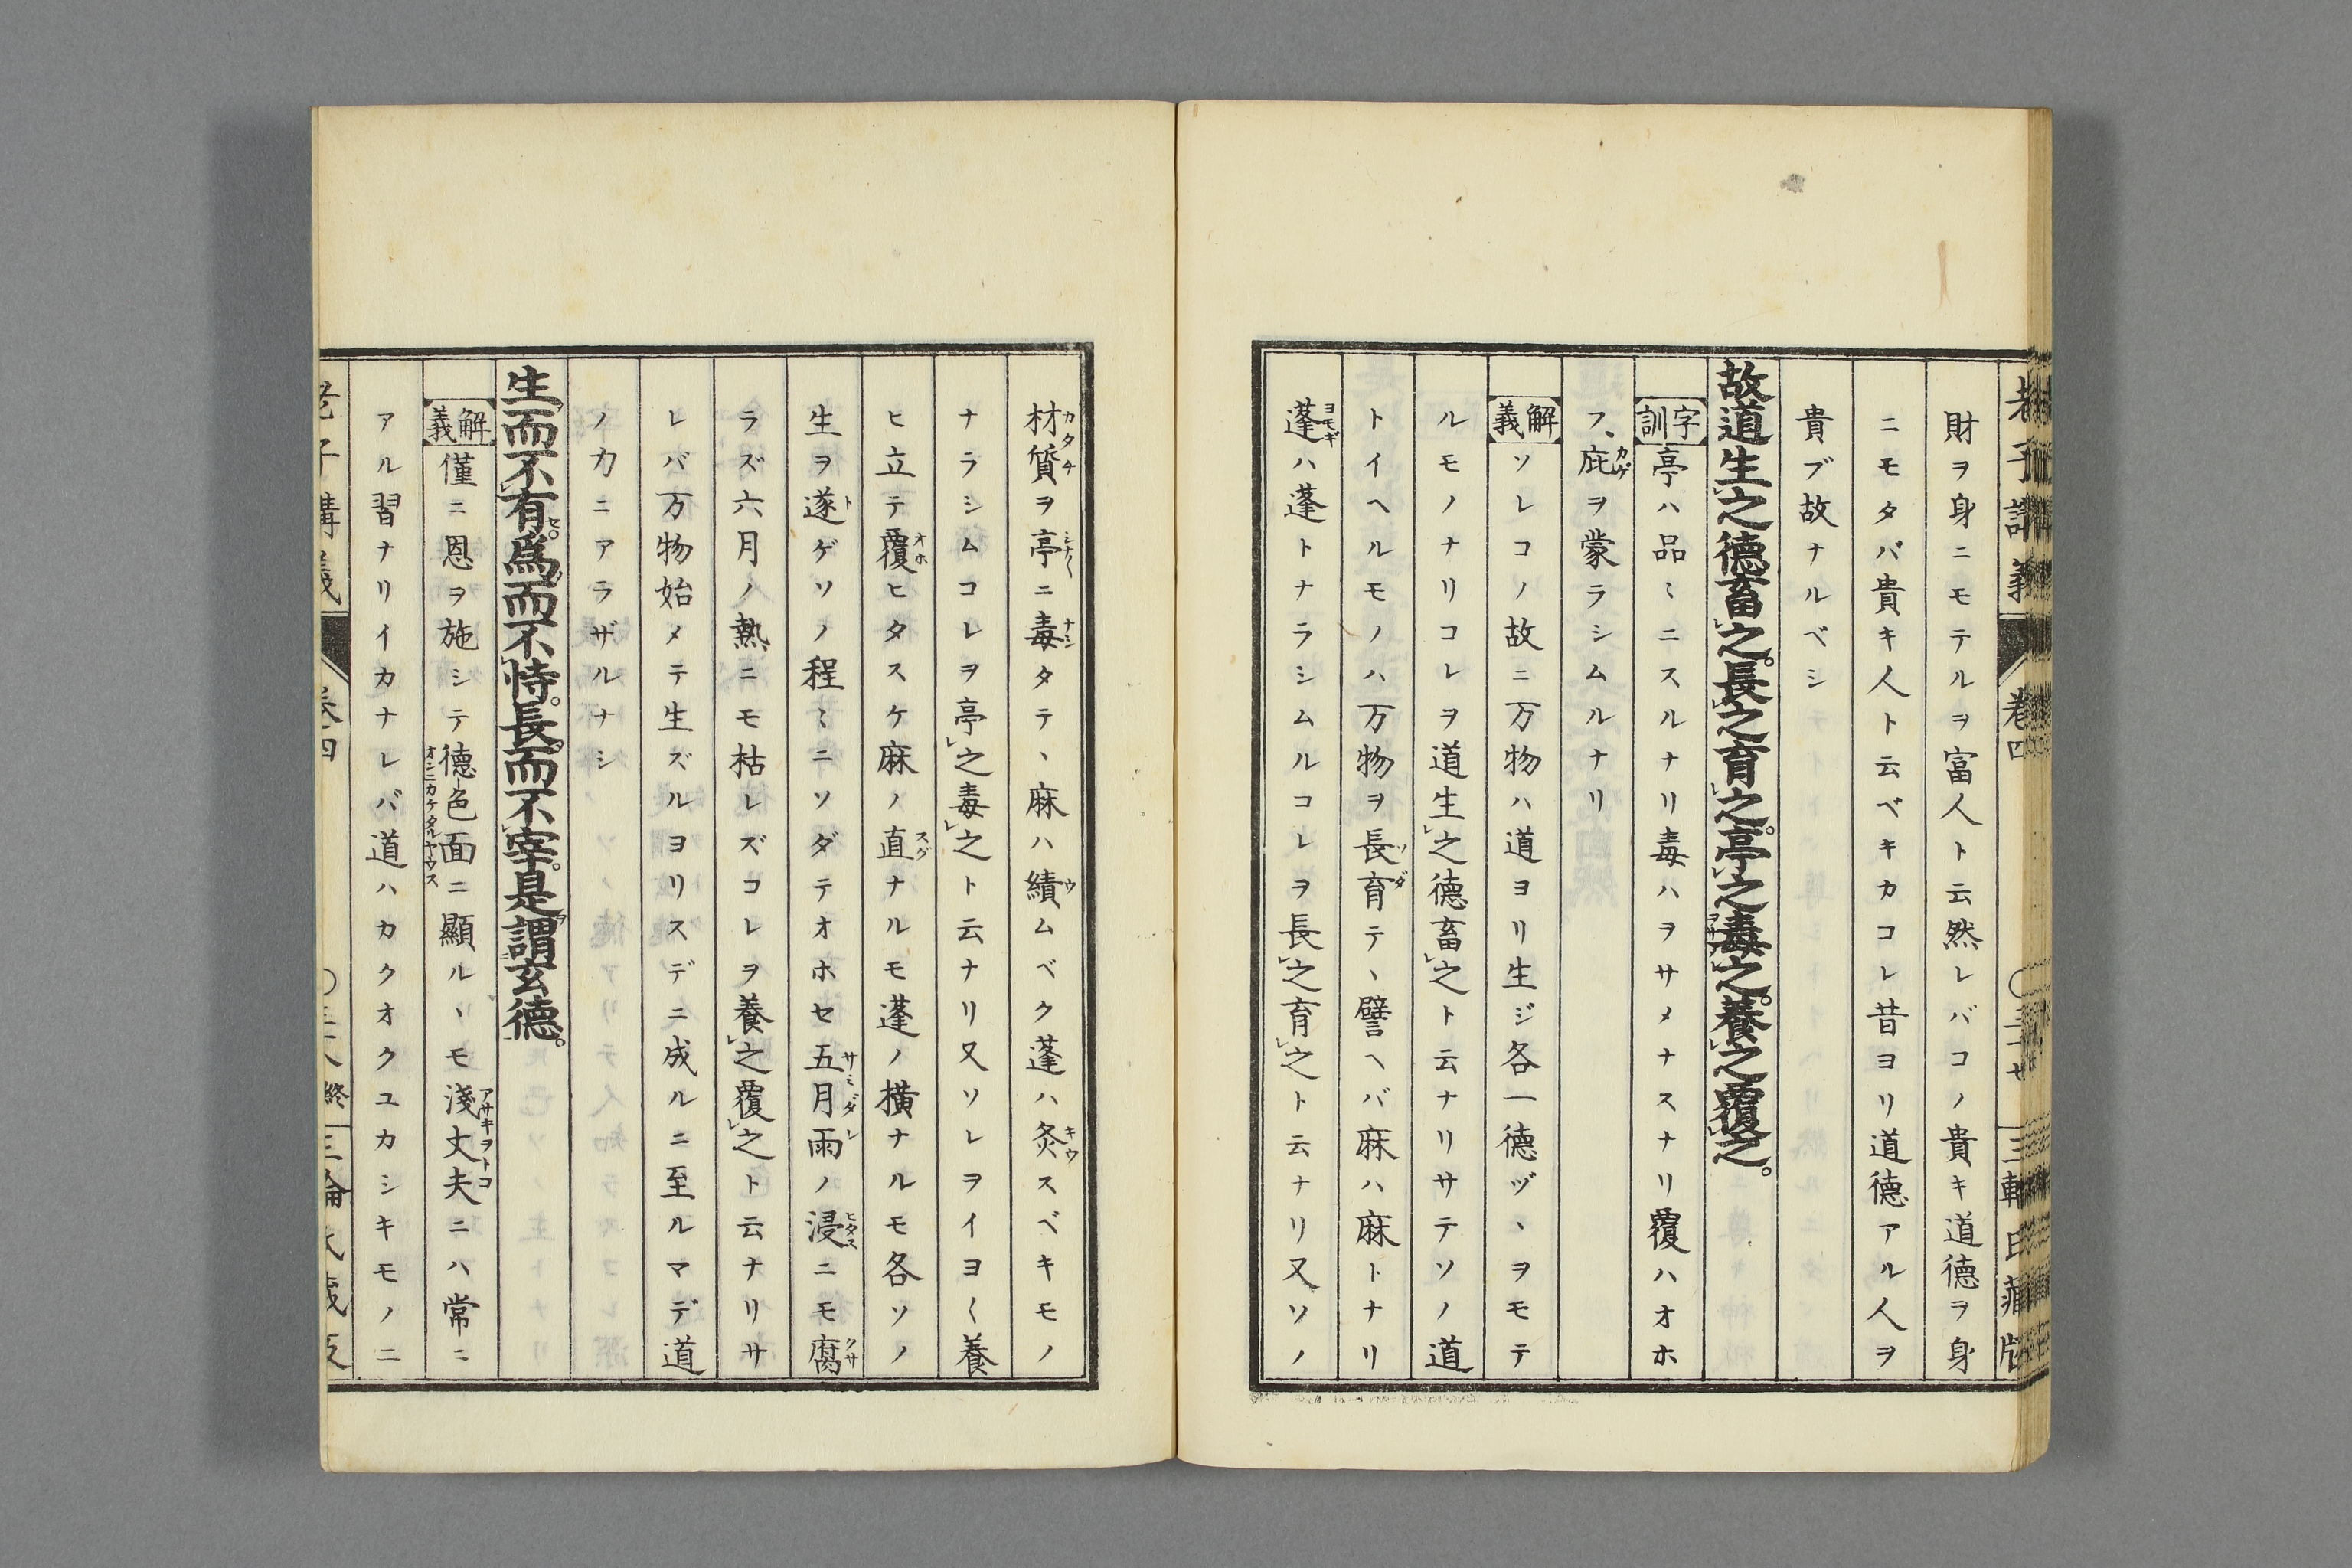 財ヲ身ニモテルヲ富人ト云然レバコノ貴キ道德ヲ身
ニモタバ貴キ人ト云ベキカコレ昔ヨリ道德アル人ヲ
貴ブ故ナルベシ
故道生之德畜之。長之育之。亭之毒之。養之覆之。
字訓 亭ハ品〻ニスルナリ毒ハヲサメナスナリ覆ハオホ
フ、庇ヲ蒙ラシムルナリ
解義 ソレコノ故ニ万物ハ道ヨリ生ジ各一德ヅヽヲモテ
ルモノナリコレヲ道生之德畜之ト云ナリサテソノ道
トイヘルモノハ万物ヲ長育テヽ譬ヘバ麻ハ麻トナリ
蓬ハ蓬トナラシムルコレヲ長之育之ト云ナリ又ソノ
材質ヲ亭ニ毒タテヽ麻ハ績ムベク蓬ハ灸スベキモノ
ナラシムコレヲ亭之毒之ト云ナリ又ソレヲイヨ〱養
ヒ立テ覆ヒタスケ麻ノ直ナルモ蓬ノ横ナルモ各ソノ
生ヲ遂ゲソノ程〻ニソダテオホセ五月雨ノ浸ニモ腐
ラズ六月ノ熱ニモ枯レズコレヲ養之覆之ト云ナリサ
レバ万物始メテ生ズルヨリスデニ成ルニ至ルマデ道
ノ力ニアラザルナシ
生而不有。爲而不恃。長而不宰。是謂玄德。
解義 僅ニ恩ヲ施シテ德色面ニ顯ルヽモ淺丈夫ニハ常ニ
アル習ナリイカナレバ道ハカクオクユカシキモノニ